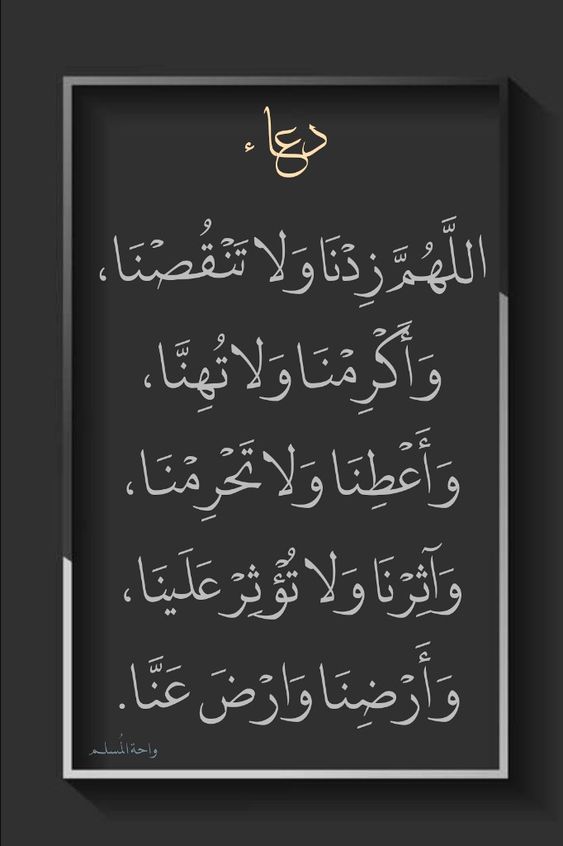 دعاء
اللَّهُمَّ زِدْنَا وَلا تَنْقُصْنَا،
وَأَكْرِمْنَا وَلا تُهِنَّا،
وَأَعْطِنَا وَلا تَحْرِمْنَا،
وَآثِرْنَا وَلا تُؤْثِرْ عَلَينَا،
وَأَرْضِنَا وَارْضَ عَنَّا.
واحة المُسلم